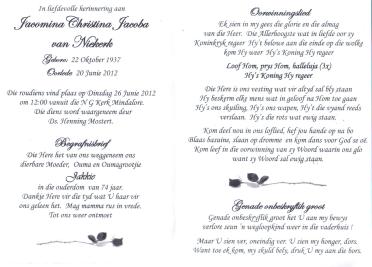 In liefdevolle herinnering aan
Jacomina Christina, Jacoba
van Niekerk
Gebore: 22 Oktober 1937
Oorlede: 20 Junie 2012
Die roudiens vind plaas op Dinsdag 26 Junie 2012
om 12:00 vanuit die N G Kerk Mindalore.
Die diens word waargeneem deur
Ds. Henning Mostert.
Begrafnisbrief
Die Here het van ons weggeneem ons
dierbare Moeder, Ouma en Oumagrootjie
Jakkie
in die ouderdom van 74 jaar.
Dankie Here vir die tyd wat U haar vir
ons geleen het. Mag mamma rus in vrede.
Tot ons weer ontmoet
Oorwinningslied
Ek sien in my gees die glorie en die almag
van die Heer. Die Allerhoogste wat in liefde oor sy
Koninkryk regeer Hy's belowe aan die einde op die wolke
kom Hy weer Hy's Koning Hy regeer
Loof Hom, prys Hom, halleluja (3x)
Hy's Koning Hy regeer
Die Here is ons vesting wat vir altyd sal bly staan
Hy beskerm elke mens wat in geloof na Hom toe gaan
Hy's ons skuiling, Hy's ons wapen, Hy't die vyand reeds
verslaan. Hy's die rots wat ewig staan.
Kom deel nou in ons loflied, hef jou hande op na bo
Blaas basuine, slaan op dromme en kom dans voor God se eof.
Kom leef in die oorwinning van sy Woord waarin ons glo
want sy Woord sal ewig staan.
Genade onbeskryflik groot
Genade onbeskryflik groot het U aan my bewys
verlore seun 'n wegloopkind weer in die vaderhuis !
Maar U sien ver, oneindig ver. U sien my honger, dors.
Want toe ek kom, my skuld bely, druk U my aan die bors.